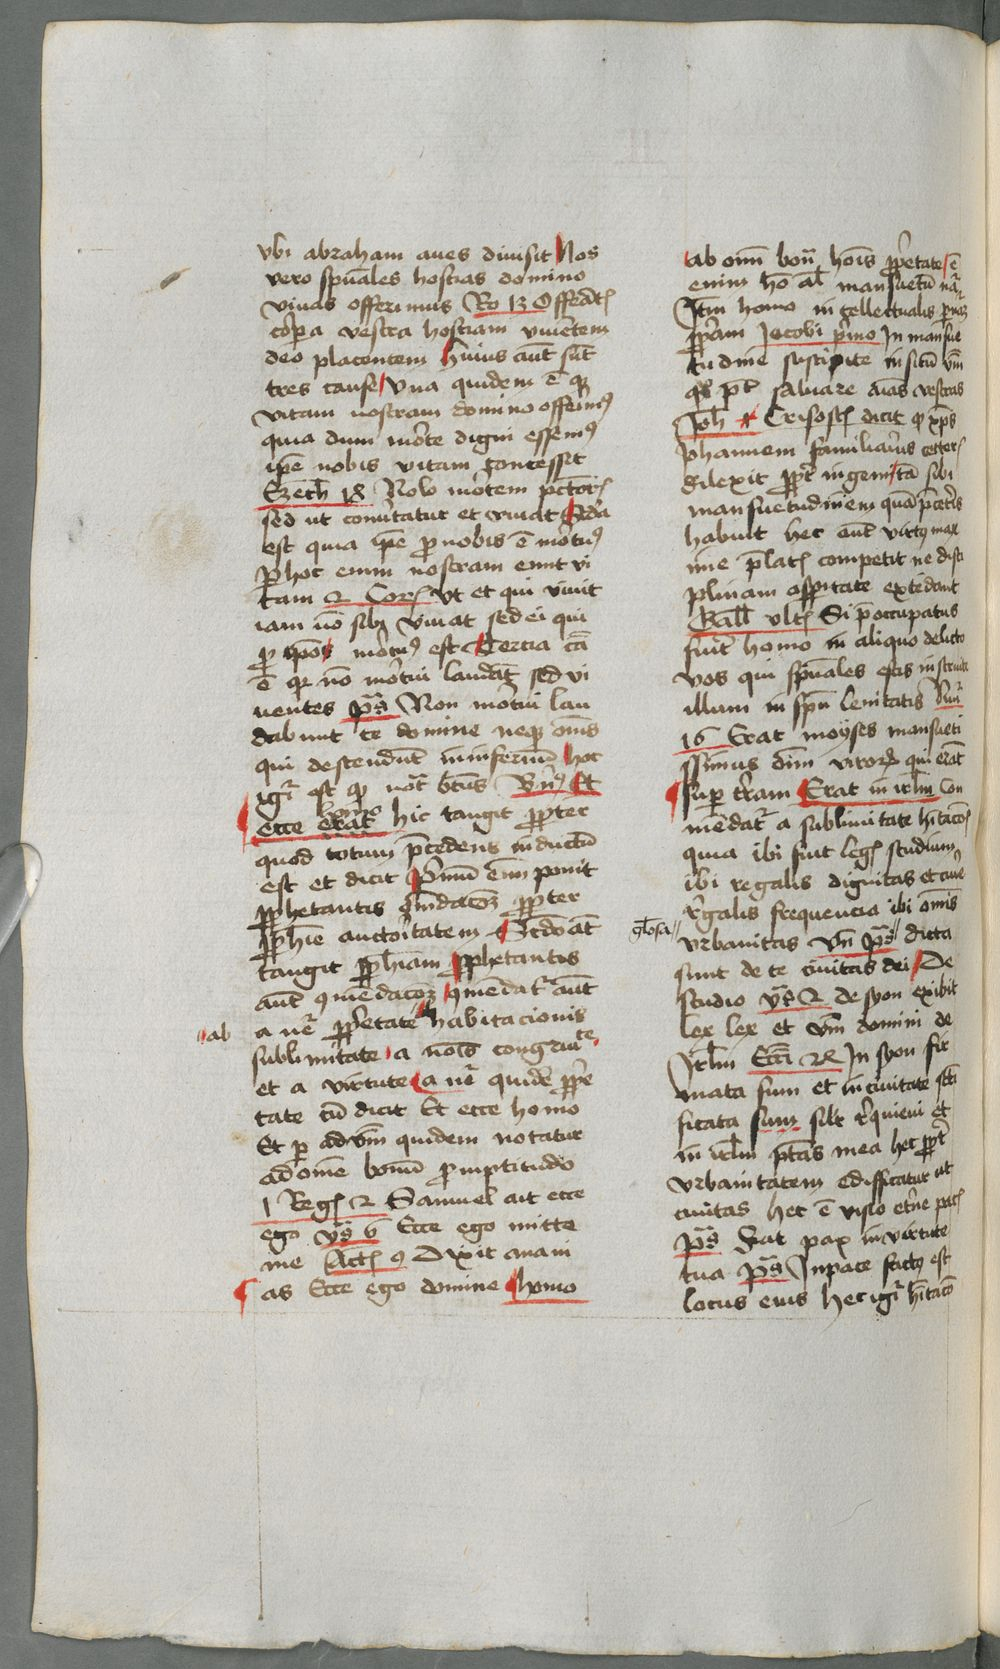 vbi abraham aues diuisit Nos
vero spūales hostias domino
viuas offerimus Ro 12 Offerāt
corpora vestra hostiam viuētem
deo placentem huius aūt sūt
tres cause vna quidem ē qꝫ
vitam nostram domino offerimꝰ
quia dum morte digni essemꝰ
ipē nobis vitam concessit
Ezech 18 Nolo mortem pctoris
sed ut conūtatur et viuat Scda
est quia ipē ꝓ nobis ē mortuꝰ
ꝑ hoc enim nostram emit vi
tam 2 Cor ut et qui viuit
iam nō sibi viuat sed ei qui
ꝓ ipō mortuꝰ est Tercia cā
ē qꝛ nō mortui laudāt sed vi
uentes ps Non mortui lau
dabunt te domine neqꝫ om̄s
qui descendūt in infernū hoc
igr̄ est
ecce homo erat hic tangit propter
quod totum p̄cedens inductū
est et dicit Primū enim ponit
ꝓphetantis cōmēdacōꝫ propter
ꝓphīe auctoritatem Scdo aūt
tangit ꝓphīam ꝓphetantis
aūt ꝯmēdacōꝫ ꝯmēdatr aūt
ab
a ꝓprietate habitacionis
sublimitate a nois congruitate
et a virtute a quidē ꝓprie
tate cū dicit Et ecce homo
Et ꝑ aduīm quidem notatur
ad om̄e bonū promptitudo
1 Reg 2 Samuel ait ecce
ego ys 6 Ecce ego mitte
me Act 9 Dixit anani
as Ecce ego domine homo
ab omī hōis ꝓprietate ē
enim hō āl mansuetū nār
Itm homo intellectualis
Iacobi primo In mansue
tudine suscipite insitū vm
qd pt saluare aīas vestras
Joh Crisost dicit qꝫ xps
Johannem familiarius ceteris
dilexit propter ingentā sibi
mansuetudinem quā p̄ ceteris
habuit hec aūt virtꝰ max
ime p̄latis competit ne disci
plinam aspitate extēdant
Gall vlt Si p̄occupatus
fuit homo in aliquo delicto
vos qui spūales estis instruite
illum in spū lenitatis Nur
16 Erat moyses mansueti
ssimus oīm virorꝫ qui erāt
super terram Erat in irlm Con
mēdatr a sublimitate hitacōis
quia ibi fuit legis studium
ibi regalis dignitas et
regalis frequencia ibi omīs
glosa
vrbanitas vn ps dicta
sunt de te ciuitas dei De
studio ys 2 de syon exibit
lex lex et vm domini de
irlm Ecci 24 In syon fir
mata sum et in ciuitate scti
ficata sum silr requieui et
in irlm ptās mea hec propter
vrbanitatem edifficatur ut
ciuitas hec ē visio etne pacis
ps Fiat pax in virtute
tua ps In pace factꝰ est
locus eius hec igr̄ hitaco